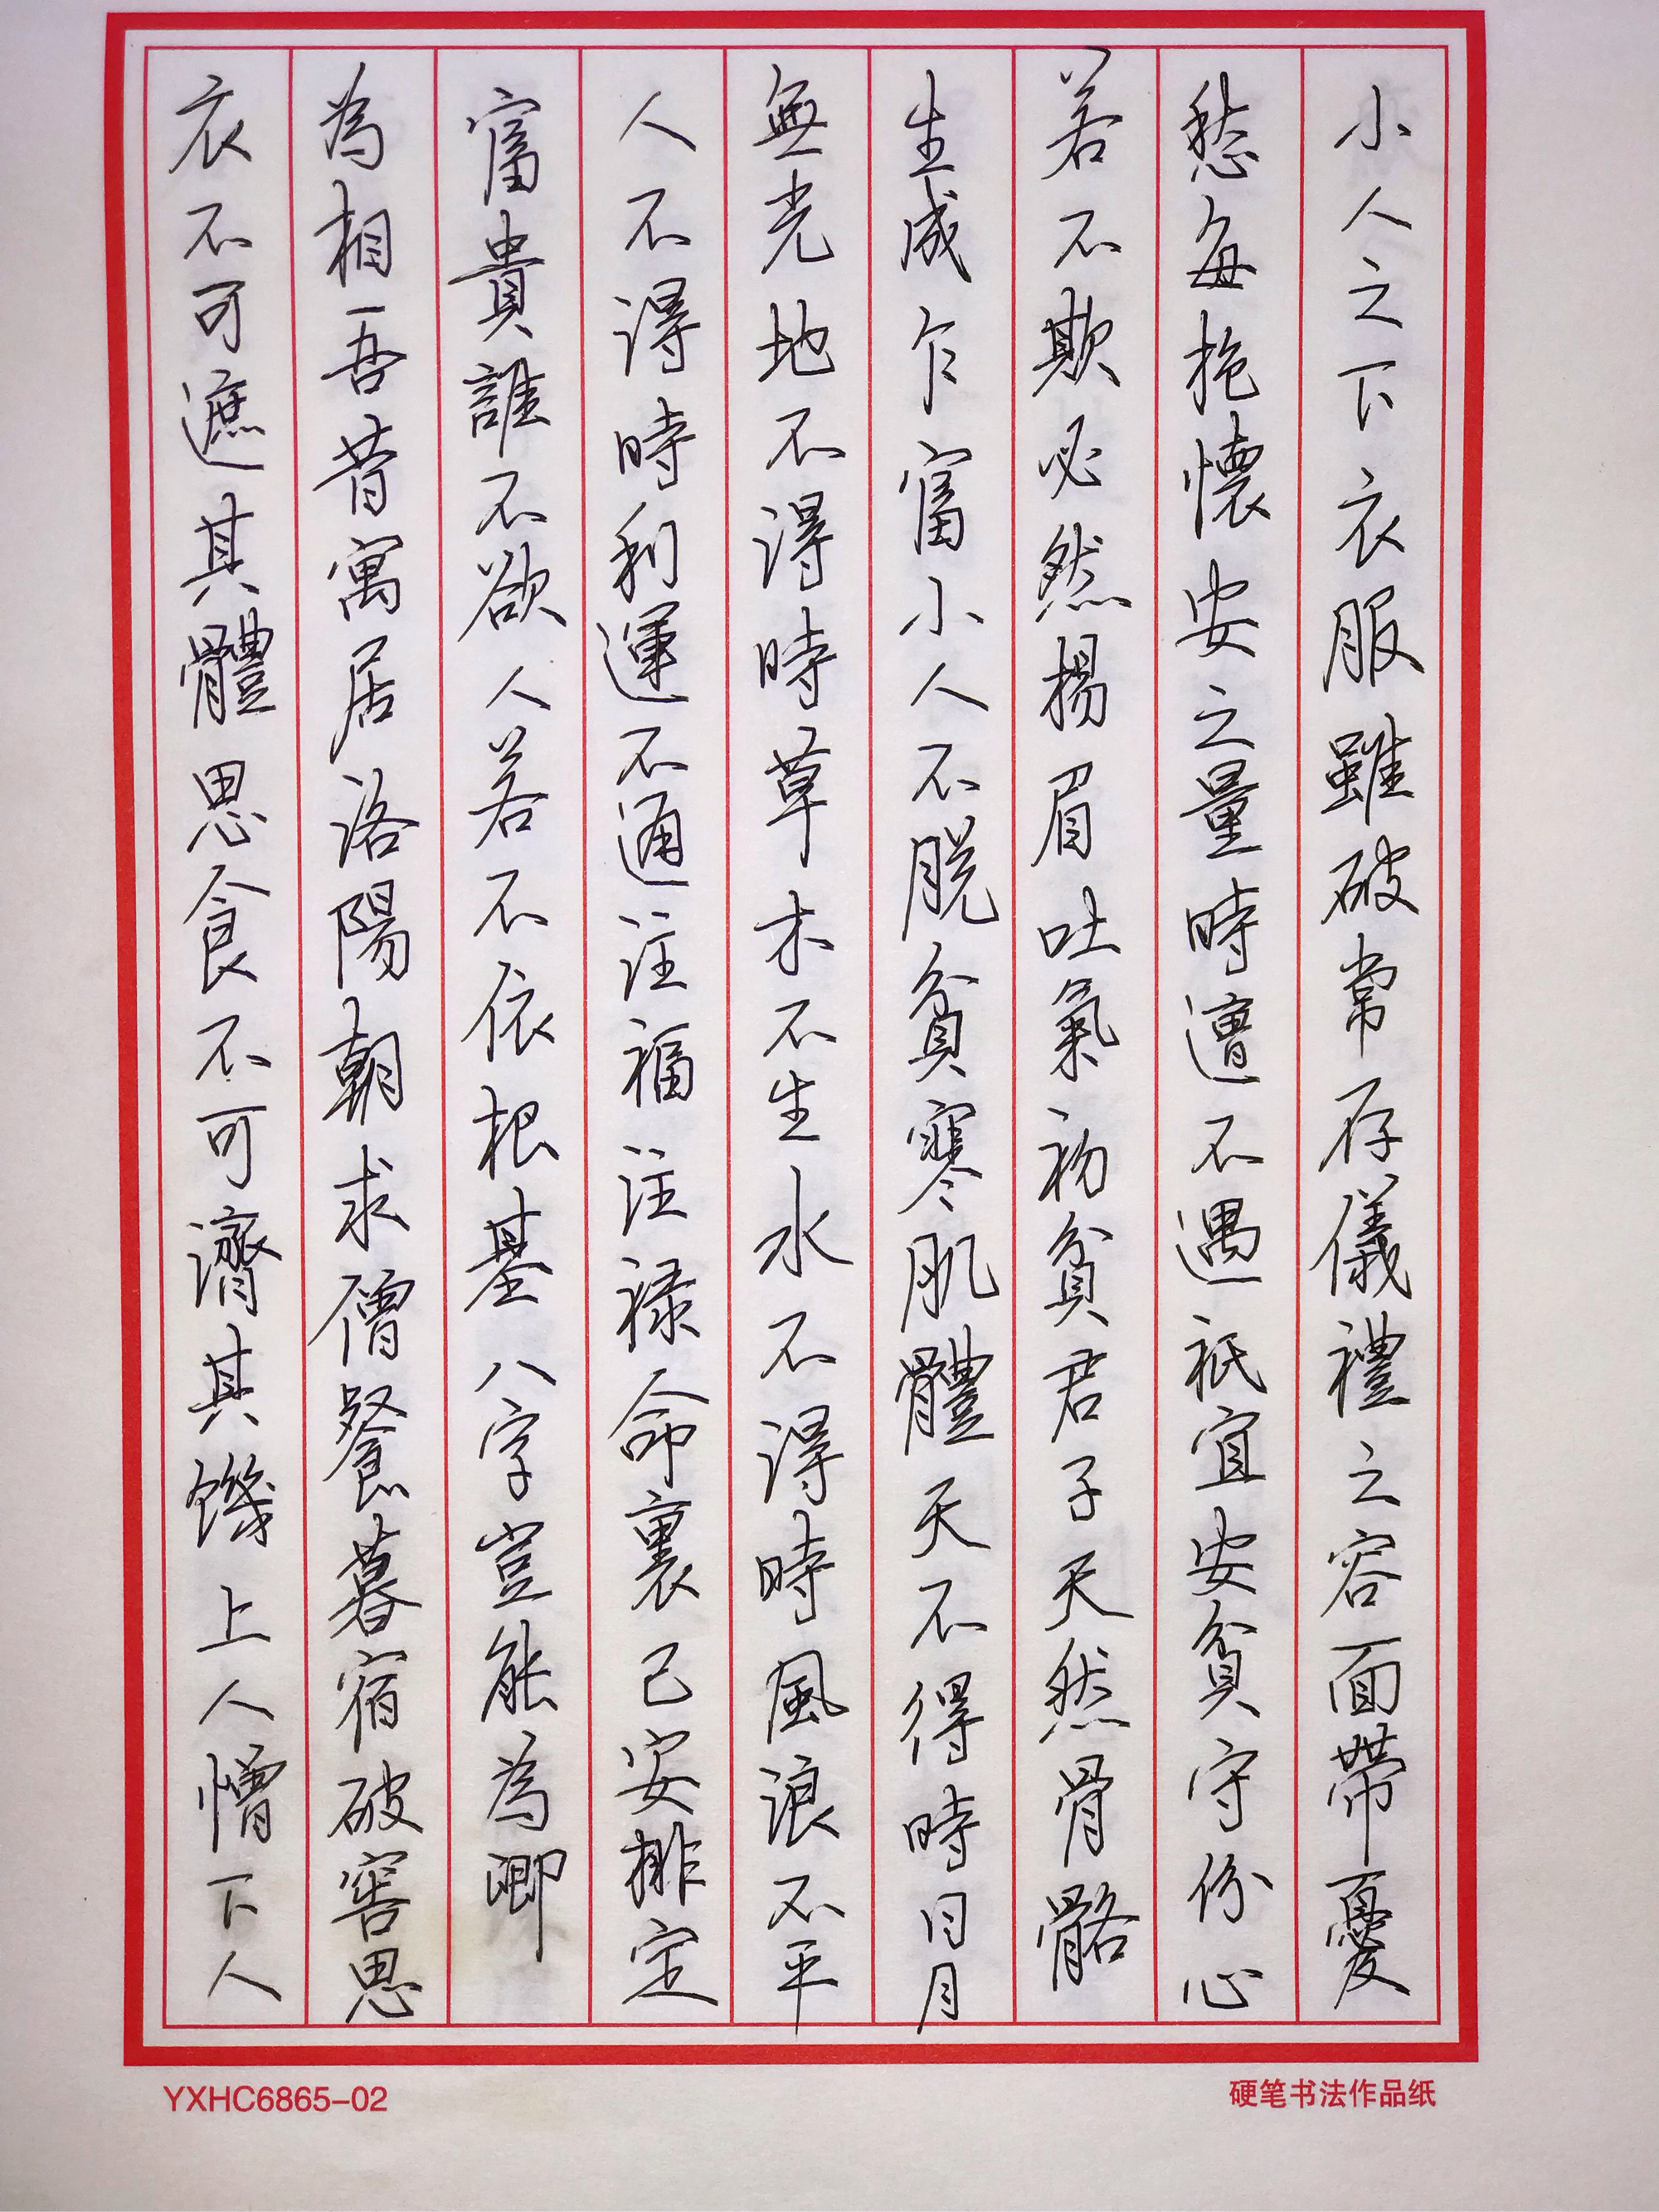 小人之下衣服雖破常存儀禮之容面帶憂
愁每抱懷安之量時遭不遇祇宜安貧守份心
若不欺必然揚眉吐氣初貧君子天然骨骼
生成乍富小人不脫貧寒肌體天不得時日月
無光地不得時草木不生水不得時風浪不平
人不得時利運不通注福注祿命裏已安排定
富貴誰不欲人若不依根基八字豈能為卿
為相吾昔寓居洛陽朝求僧餐暮宿破窖思
衣不可遮其體思食不可濟其饑上人憎下人
YXHC6865-02
硬笔书法作品纸